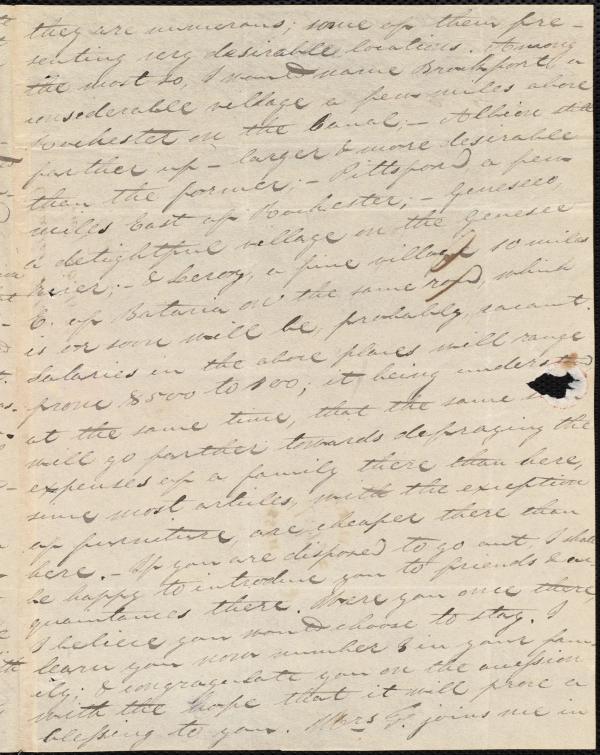 they are numerous; some of them pre-
senting very desirable locations. Among
the most so, I would name Brockport, a
considerable village a few miles above
Rochester on the Canal; - Albion still
farther up - larger & more desirable
than the former; - Pittsford a few
miles East of Rochester; - Geneseo,
a delightful village on the Genesee
River; - & Leroy, a fine village 10 miles
E. of Batavia on the same road, which
is or soon will be, probably, vacant.
Salaries in the above places will range
from $500 to 700; it being understood
at the same time, that the same
will go farther towards defraying the
expenses of a family there than here,
since most articles, with the exception
of furniture, are cheaper there than
here. - If you are disposed to go out, I shall
be happy to introduce you to friends & ac-
quaintances there. Were you once there,
I believe you would choose to stay. I
learn you now number 3 in your fam-
ily; & congratulate you on the accession
with the hope that it will prove a
blessing to you. Mrs F. joins me in